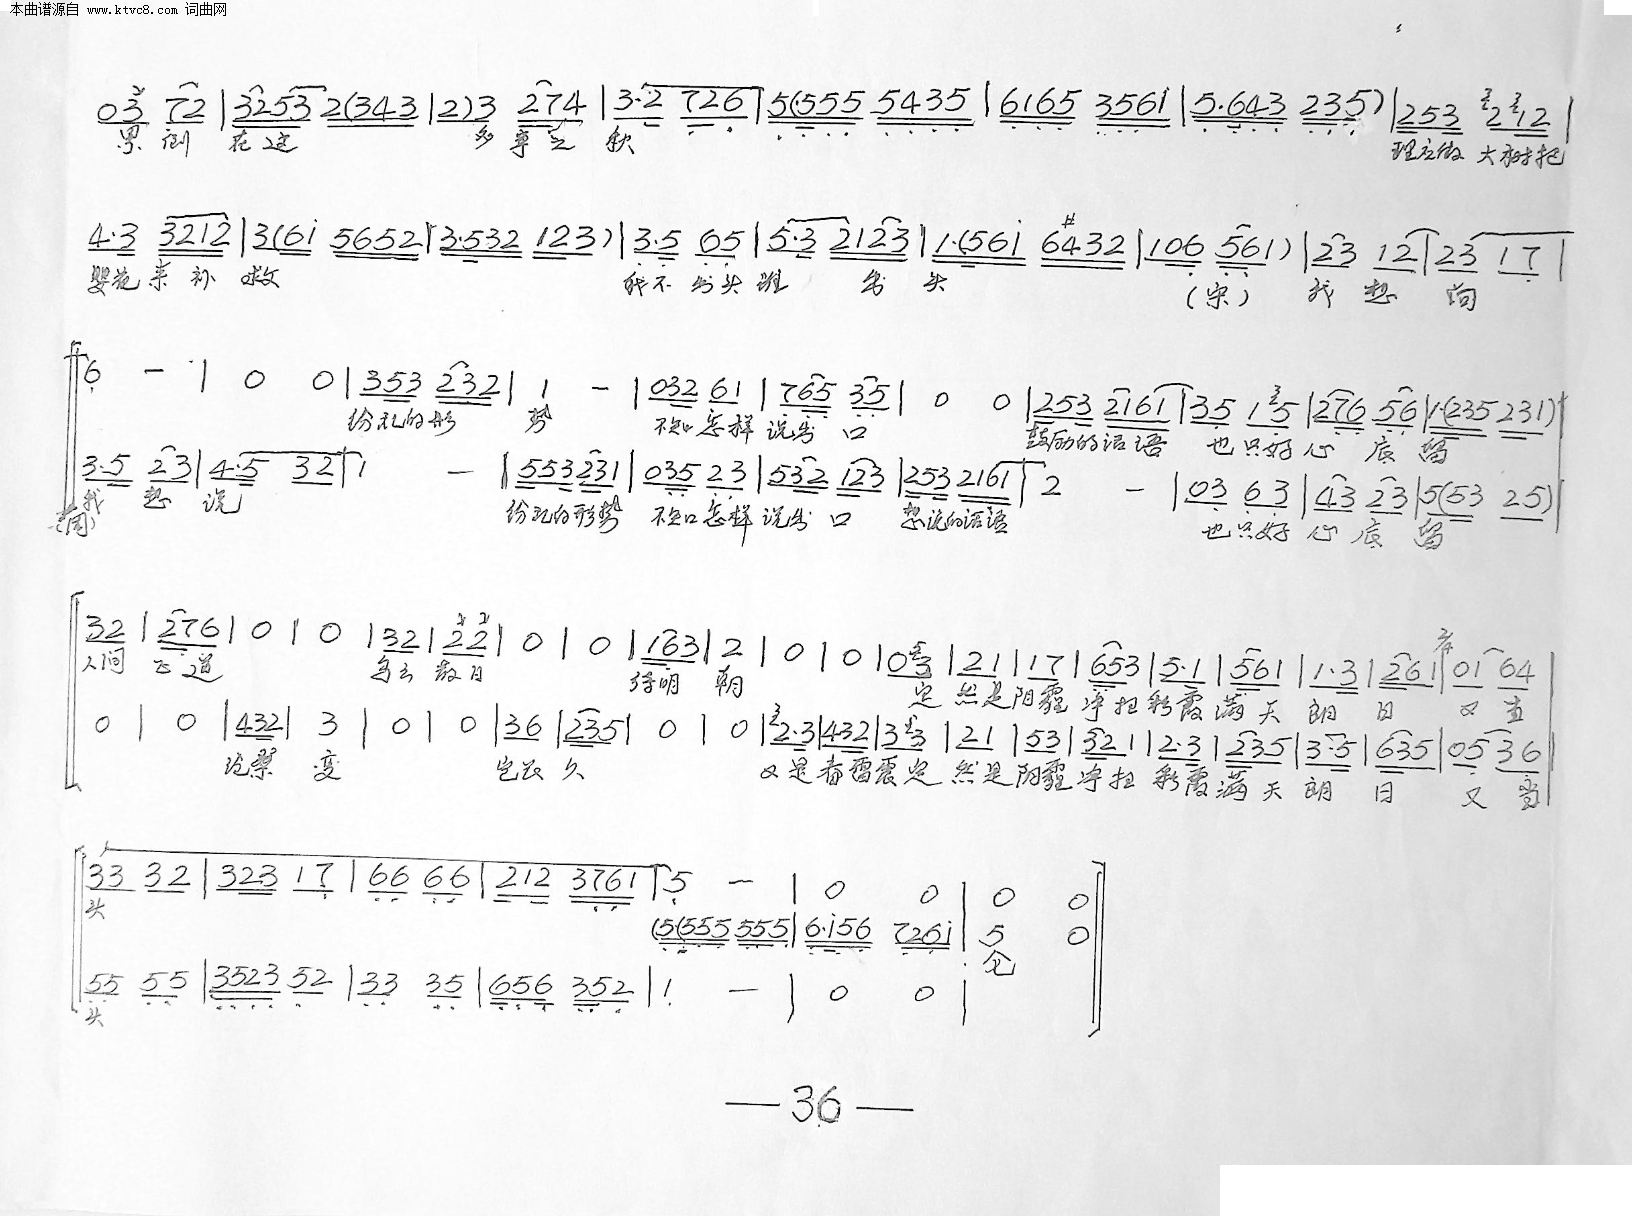 本曲谱源自 www.ktvc8.com 词曲网
03 72 | 3253 2(343 | 2)3 274 | 3·2 726 | 5(555 5435 | 6165 3561 | 5·643 235) | 253 212 |
累 倒 在这 多 事之 秋 理应做 大树把
4·3 3212 | 3(61 5652 | 3·532 123) | 3·5 65 | 5·3 2123 | 1·(561 6#432 | 106 561) | 23 12 | 23 17 |
樱花 来 补 救 我不 出头 谁 出 头 (宋) 我 想 问
6 - | 0 0 | 353 232 | 1 - | 032 61 | 765 35 | 0 0 | 253 2161 | 35 15 | 276 56 | 1·(235 231)
纷乱的形 势 不知 怎样 说出 口 鼓励的话语 也只好 心 底 留
3·5 23 | 4·5 32 | 1 - | 553 231 | 035 23 | 532 123 | 253 2161 | 2 - | 03 63 | 43 23 | 5(53 25)
我 想 说 纷乱的形势 不知 怎样 说出 口 想说的话语 也只好 心 底 留
32 | 276 | 0 | 0 | 32 | 22 | 0 | 0 | 163 | 2 | 0 | 0 | 03 | 21 | 17 | 653 | 5·1 | 561 | 1·3 | 261 | 01 64
人间 正 道 乌云 散日 待明 朝 定 然是阴霾 净扫 彩霞 满 天 朗 日 又 当
0 | 0 | 432 | 3 | 0 | 0 | 36 | 235 | 0 | 0 | 2·3 | 432 | 33 | 21 | 53 | 321 | 2·3 | 235 | 3·5 | 635 | 05 36
沧桑 变 岂长 久 又是春雷震定 然是阴霾 净扫 彩霞 满 天 朗 日 又 当
33 32 | 323 17 | 66 66 | 212 3761 | 5 - | 0 0 | 0 0
头
(5(555 555 | 6·156 7261 | 5 0
仓
55 55 | 3523 52 | 33 35 | 656 352 | 1 - | 0 0 |
头
— 36 —